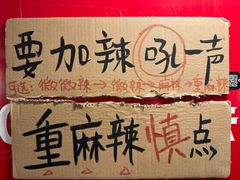 要加辣吼一声
可选:微微辣→微辣→麻辣→重麻辣
重麻辣慎点